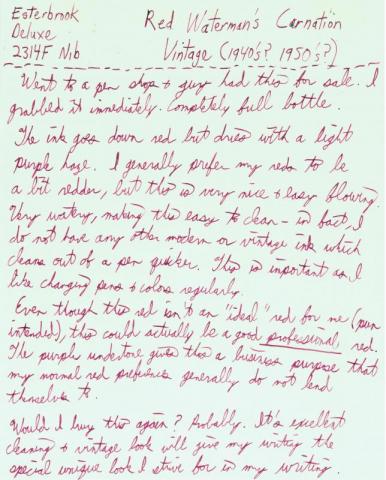 Esterbrook
Deluxe
2314F Nib
Red Waterman's "Carnation"
Vintage (1940's? 1950's?)
Went to a pen shop & guy had this for sale. I
grabbed it immediately. Completely full bottle.
The ink goes down red but dries with a light
purple haze. I generally prefer my reds to be
a bit redder, but this is very nice & easy flowing.
Very watery, making this easy to clean - in fact, I
do not have any other modern or vintage ink which
cleans out of a pen quicker. This is important as I
like changing pens & colors regularly.
Even though this red isn't an "ideal" red for me (pun
intended), this could actually be a good professional red.
The purple undertone gives this a business purpose that
my normal red preferences generally do not lend
themselves to.
Would I buy this again? Probably. It's excellent
cleaning & vintage look will give my writing the
special unique look I strive for in my writing.